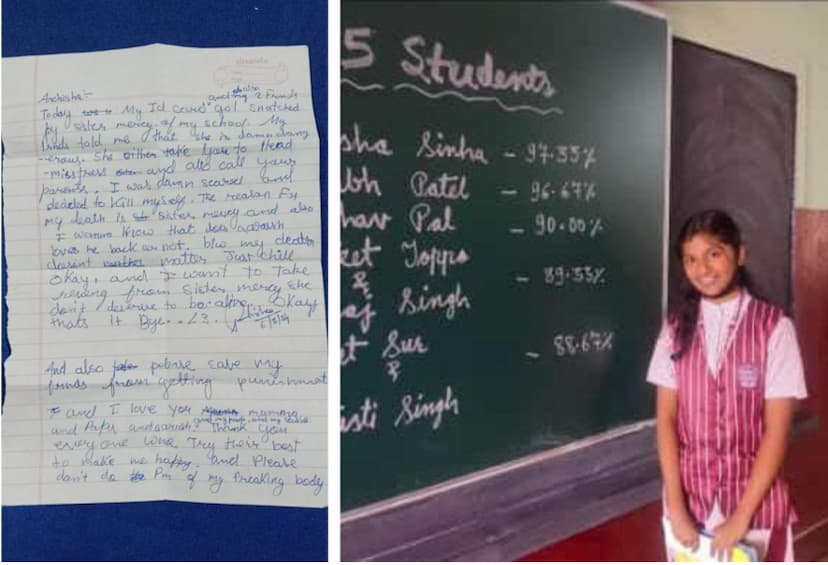 Today My Id card got snatched
and my 2 friends
by Sister mercy of my school. My
frnds told me that she is damn dang
-erous. She either take you to Head
-misstress and also call your
parents. I was damn scared and
decided to kill myself. The reason
my death is Sister mercy and also
I wanna know that does
loves me back or not. btw my death
dosent matter Just chill
Okay, and I want to take
from Sister mercy she
don't deserve to be Okay
thats it Bye.
And also please save my
frnds from getting punishment
and I love you mumma
and Papa and Thank you
everyone who Try their best
to make me happy. and Please
don't do Pm of my freaking body
5 Students
sha Sinha - 97.33%
bh Patel - 96.67%
hav Pal - 90.00%
eet Toppo
& - 89.33%
aj Singh
et Sur - 88.67%
&
isti Singh